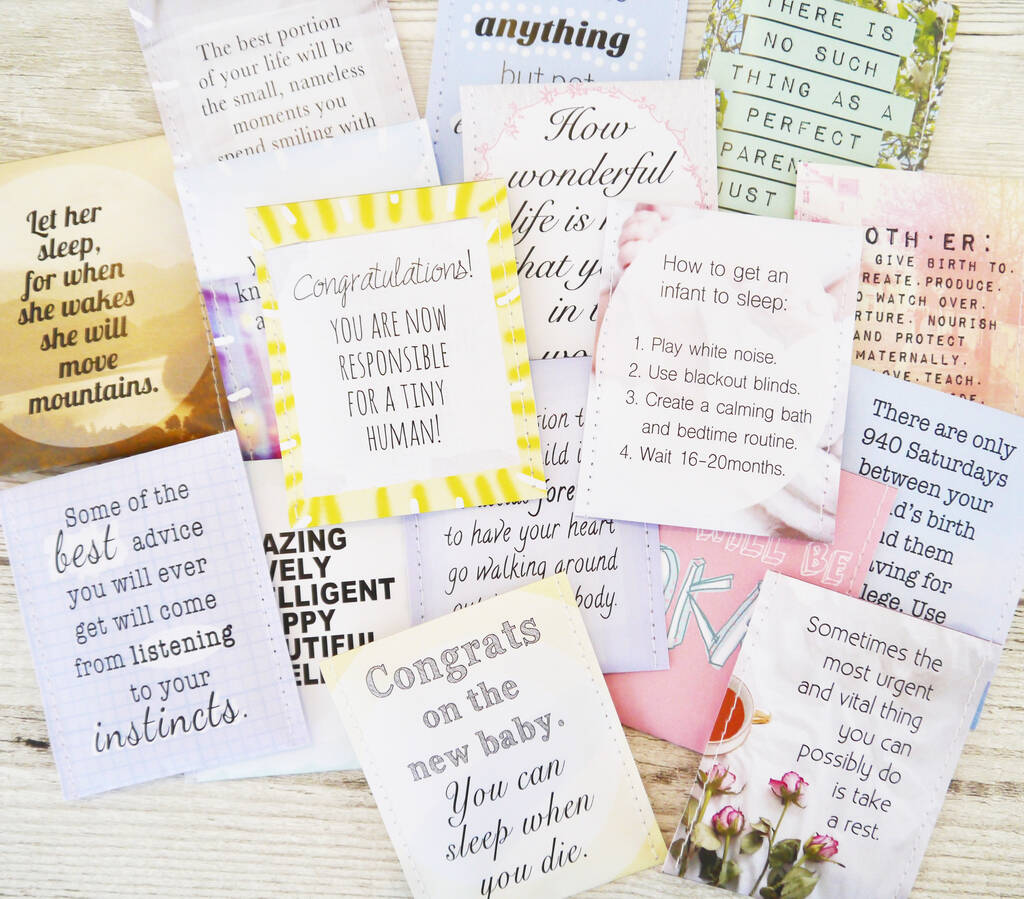 The best portion
of your life will be
the small, nameless
moments you
spend smiling with
anything
but not
THERE IS
NO SUCH
THING AS A
PERFECT
PAREN
JUST
How
wonderful
life is
that
in
Let her
sleep,
for when
she wakes
she will
move
mountains.
kn
a
Congratulations!
YOU ARE NOW
RESPONSIBLE
FOR A TINY
HUMAN!
How to get an
infant to sleep:
1. Play white noise.
2. Use blackout blinds.
3. Create a calming bath
and bedtime routine.
4. Wait 16-20months.
OTH·ER:
GIVE BIRTH TO.
REATE.PRODUCE.
O WATCH OVER.
RTURE. NOURISH
AND PROTECT
MATERNALLY.
OVE.TEACH.
There are only
940 Saturdays
between your
d's birth
nd them
aving for
lege. Use
Some of the
best advice
you will ever
get will come
from listening
to your
instincts.
AZING
VELY
LLIGENT
PPY
UTIFUL
ELF
sion to
ild i
fore
to have your heart
go walking around
body.
WILL BE
OKA
Congrats
on the
new baby.
You can
sleep when
you die.
Sometimes the
most urgent
and vital thing
you can
possibly do
is take
a rest.